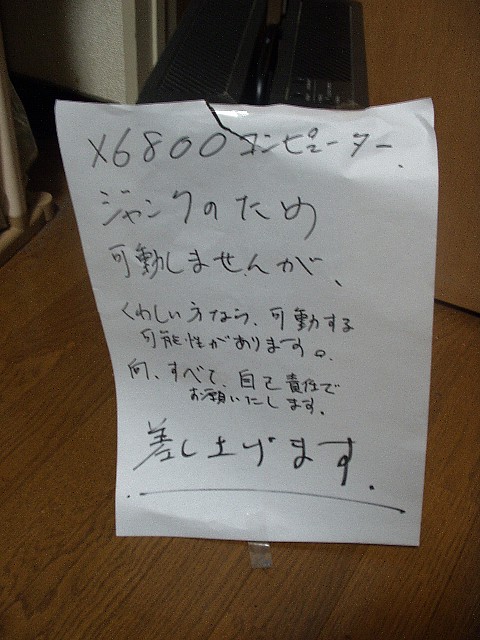 X6800コンピューター.
ジャンクのため
可動しませんが、
くわしい方なら、可動する
可能性があります。
尚、すべて、自己責任で
お願いたします。
差し上げます.